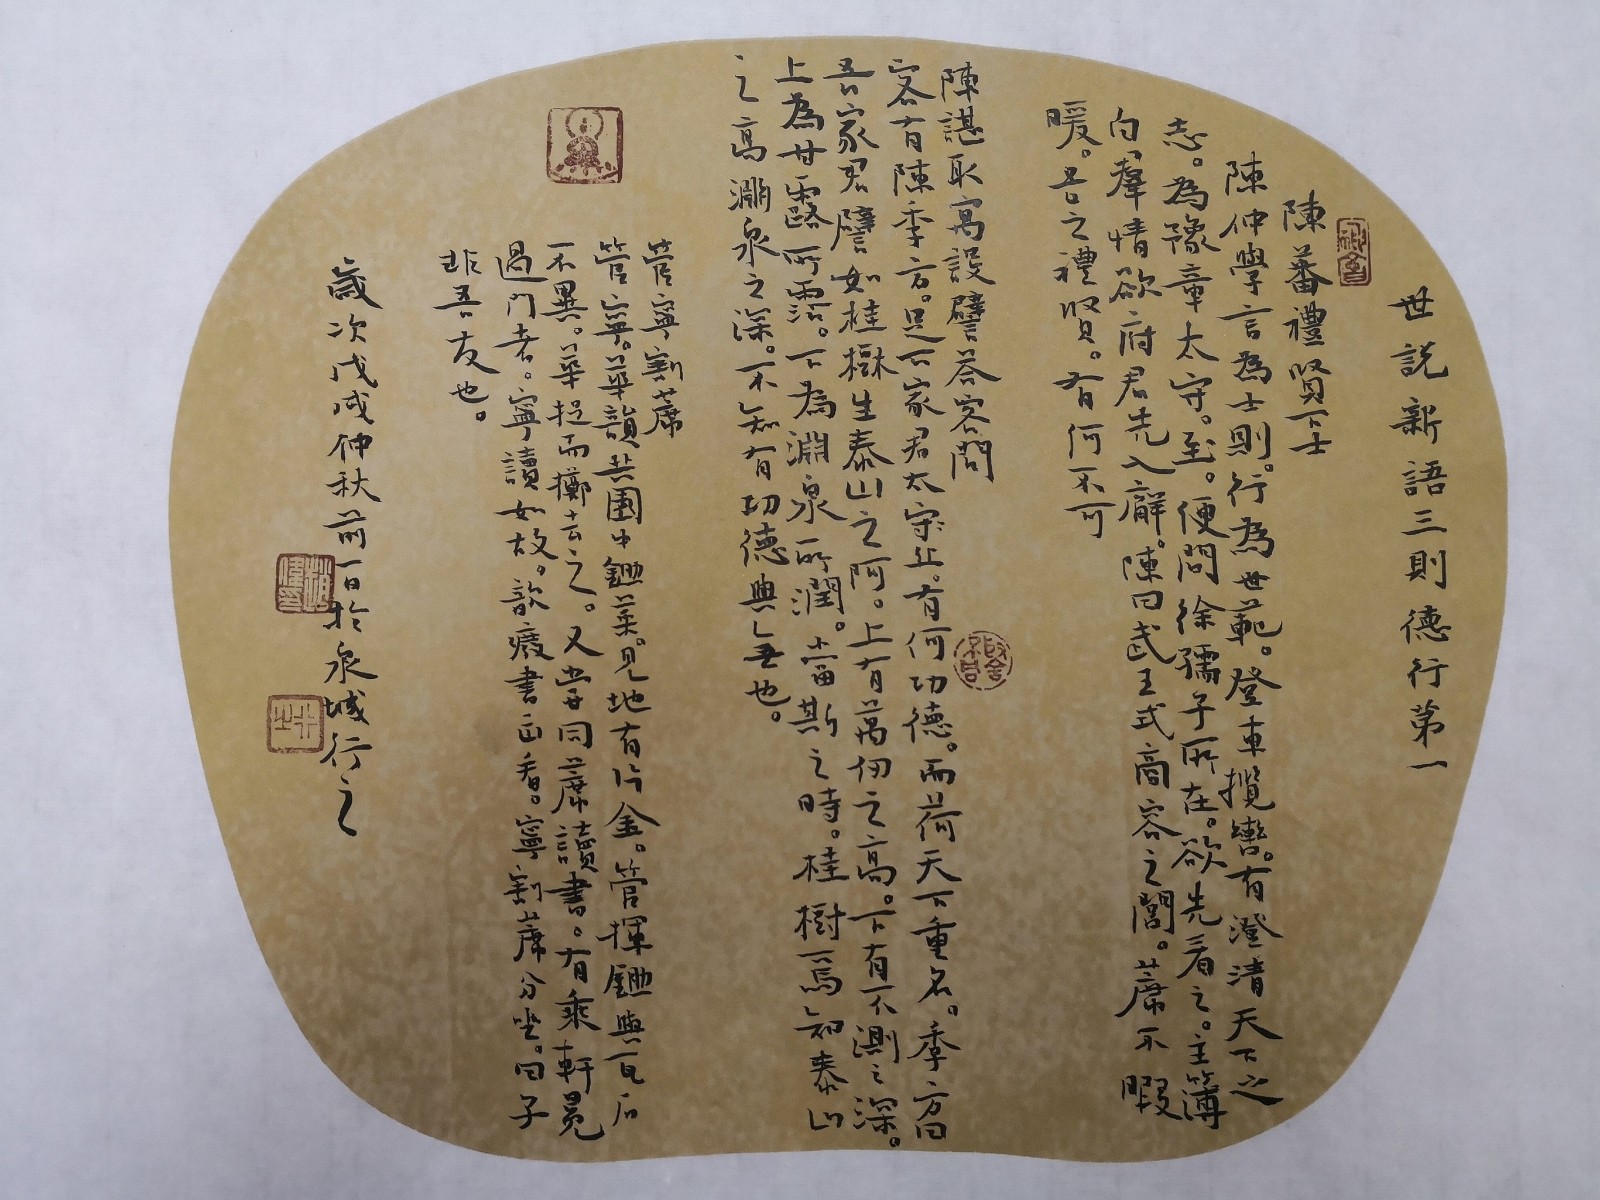 世説新語三則德行第一
陳蕃禮賢下士
陳仲學言為士則。行為世範。登車攬轡。有澄清天下之
志。為豫章太守。至。便問徐孺子所在。欲先看之。主簿
白羣情欲府君先入廨。陳曰武王式商容之閭。席不暇
暖。吾之禮賢。有何不可
陳諶取寓設譬荅客問
客有陳季方。足下家君太守丘。有何功德。而荷天下重名。季方曰
吾家君譬如桂樹生泰山之阿。上有萬仞之高。下有不測之深。
上為甘露所霑。下為淵泉所潤。當斯之時。桂樹焉知泰山
之高淵泉之深。不知有功德與無也。
管寧割席
管寧。華歆共園中鋤菜。見地有片金。管揮鋤與瓦石
不異。華捉而擲去之。又嘗同席讀書。有乘軒冕
過門者。寧讀如故。歆廢書出看。寧割席分坐。曰子
非吾友也。
歲次戊戌仲秋前一日於泉城行之